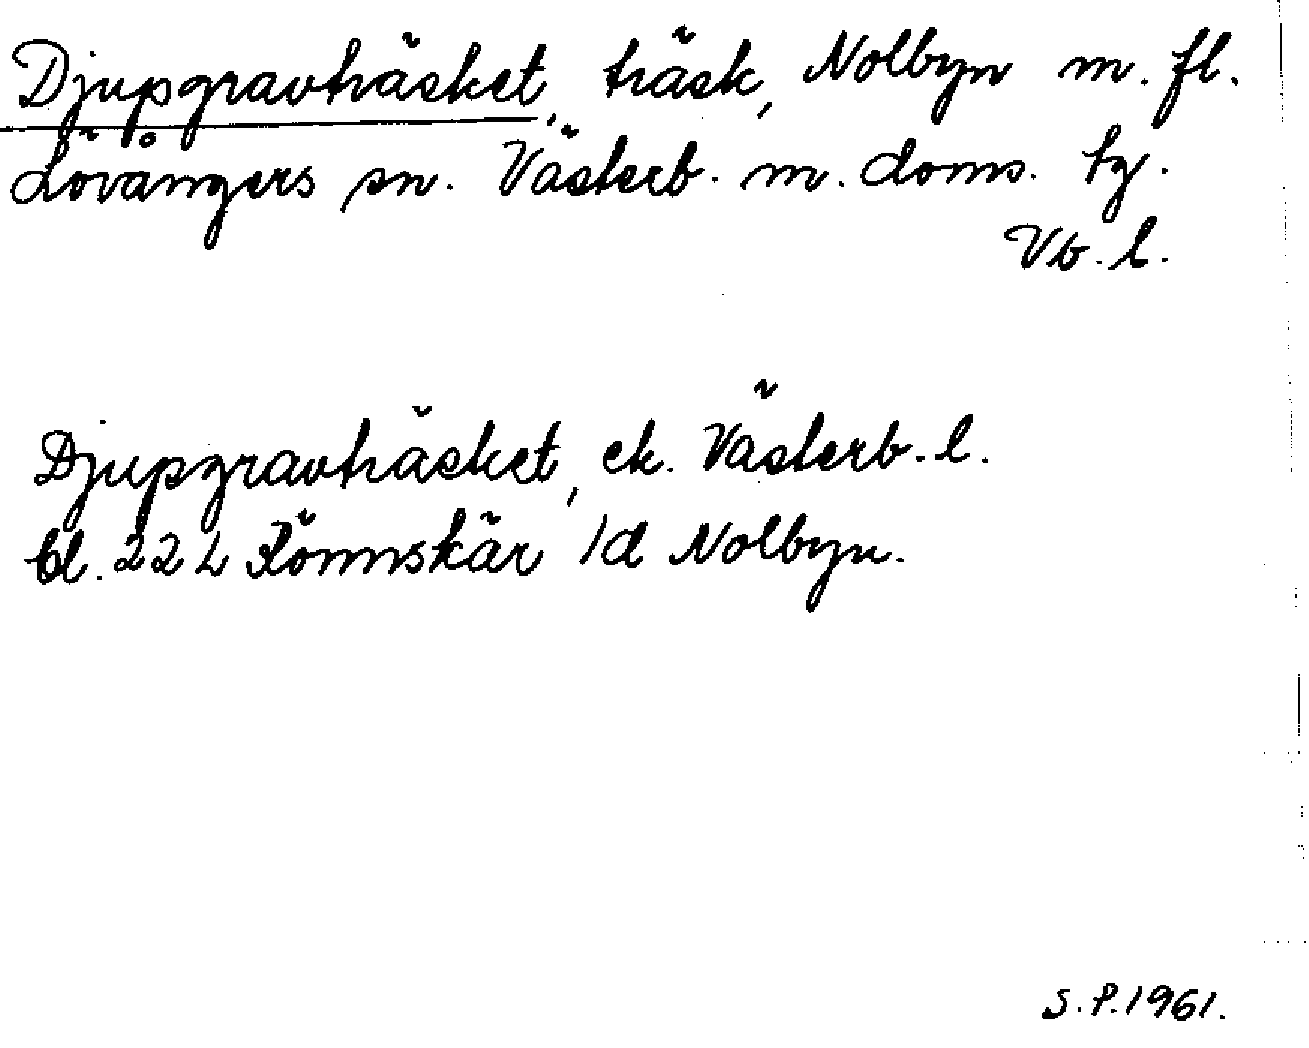 Djupgravträsket, träsk, Nolbyn m. fl.
Lövångers sn. Västerb. m. doms. tg.
Vb. l.
Djupgravträsket, ek. Västerb. l.
bl. 22 L Rönnskär 1d Nolbyn.
S.P.1961.